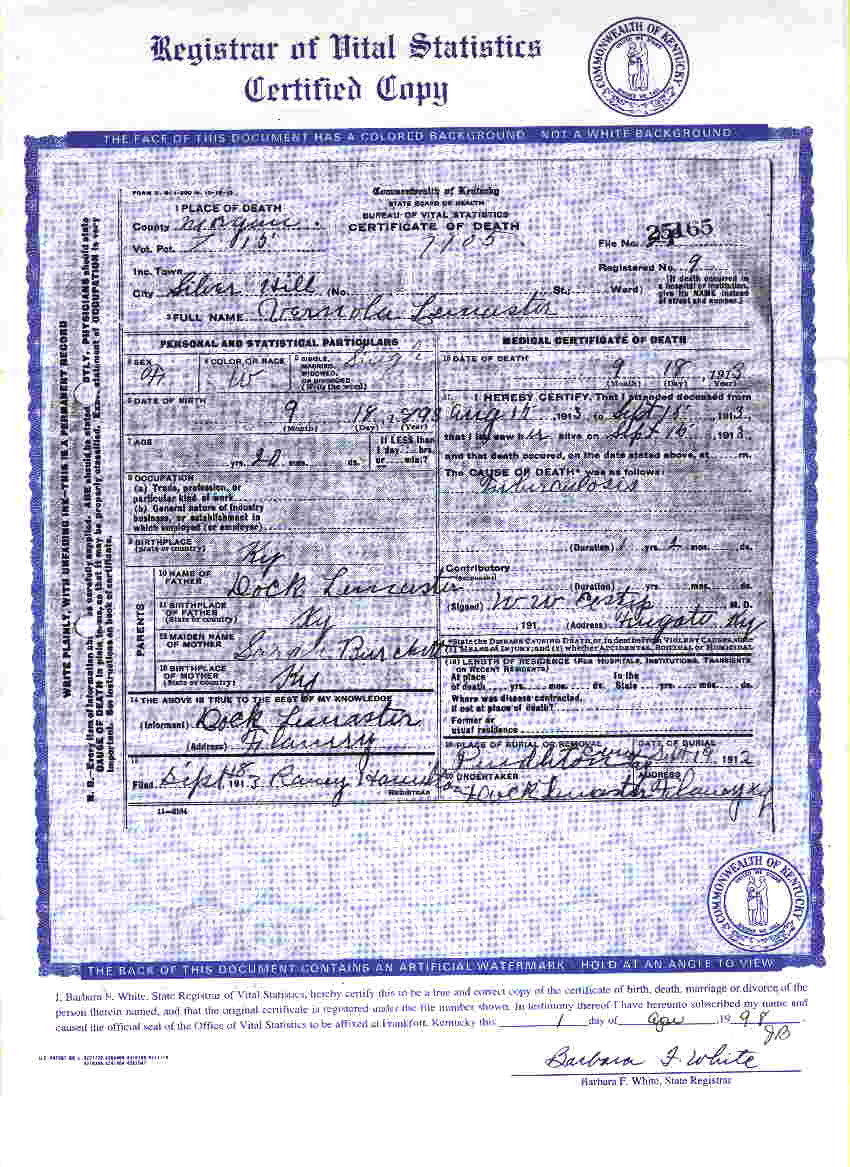 Registrar of Vital Statistics
Certified Copy
COMMONWEALTH OF KENTUCKY
THE FACE OF THIS DOCUMENT HAS A COLORED BACKGROUND NOT A WHITE BACKGROUND
Commonwealth of Kentucky
STATE BOARD OF HEALTH
BUREAU OF VITAL STATISTICS
CERTIFICATE OF DEATH
7105
1 PLACE OF DEATH
County Morgan
Vot. Pct.
File No. 25165
Inc. Town
Registered No. 9
City Silver Hill (No. St.; Ward)
(If death occurred in a hospital or institution, give its NAME instead of street and number.)
2 FULL NAME Vernola Lemaster
PERSONAL AND STATISTICAL PARTICULARS
3 SEX
4 COLOR OR RACE W
5 SINGLE, MARRIED, WIDOWED, OR DIVORCED (Write the word) Single
6 DATE OF BIRTH
9 18 1893
(Month) (Day) (Year)
7 AGE
yrs. 20 mos. ds.
If LESS than 1 day hrs. or min?
8 OCCUPATION
(a) Trade, profession, or particular kind of work
(b) General nature of industry business, or establishment in which employed (or employer)
9 BIRTHPLACE (State or country) Ky
PARENTS
10 NAME OF FATHER Dock Lemaster
11 BIRTHPLACE OF FATHER (State or country) Ky
12 MAIDEN NAME OF MOTHER Sarah Burchett
13 BIRTHPLACE OF MOTHER (State or country) Ky
14 THE ABOVE IS TRUE TO THE BEST OF MY KNOWLEDGE
(Informant) Dock Lemaster
(Address)
15
Filed Sept 18 1913
REGISTRAR
11-2184
MEDICAL CERTIFICATE OF DEATH
16 DATE OF DEATH
9 18, 1913
(Month) (Day) (Year)
17 I HEREBY CERTIFY, That I attended deceased from
Aug 12, 1913, to Sept 18, 1913,
that I last saw her alive on Sept 16, 1913,
and that death occured, on the date stated above, at m.
The CAUSE OF DEATH* was as follows:
Tuberculosis
(Duration) 1 yrs. 2 mos. ds.
Contributory
(Secondary)
(Duration) yrs. mos. ds.
(Signed) W W M. D.
, 191 (Address) Ky
*State the DISEASE CAUSING DEATH, or, in deaths from VIOLENT CAUSES, state (1) MEANS OF INJURY; and (2) whether ACCIDENTAL, SUICIDAL or HOMICIDAL
(18) LENGTH OF RESIDENCE (FOR HOSPITALS, INSTITUTIONS, TRANSIENTS OR RECENT RESIDENTS)
At place of death yrs. mos. ds. In the State yrs. mos. ds.
Where was disease contracted, if not at place of death?
Former or usual residence
19 PLACE OF BURIAL OR REMOVAL DATE OF BURIAL
Sept 19, 1912
20 UNDERTAKER ADDRESS
Dock Lemaster Ky
WRITE PLAINLY, WITH UNFADING INK—THIS IS A PERMANENT RECORD
COMMONWEALTH OF KENTUCKY
THE BACK OF THIS DOCUMENT CONTAINS AN ARTIFICIAL WATERMARK - HOLD AT AN ANGLE TO VIEW
I, Barbara F. White, State Registrar of Vital Statistics, hereby certify this to be a true and correct copy of the certificate of birth, death, marriage or divorce of the
person therein named, and that the original certificate is registered under the file number shown. In testimony thereof I have hereunto subscribed my name and
caused the official seal of the Office of Vital Statistics to be affixed at Frankfort, Kentucky this 1 day of Apr, 19 98.
Barbara F. White
Barbara F. White, State Registrar